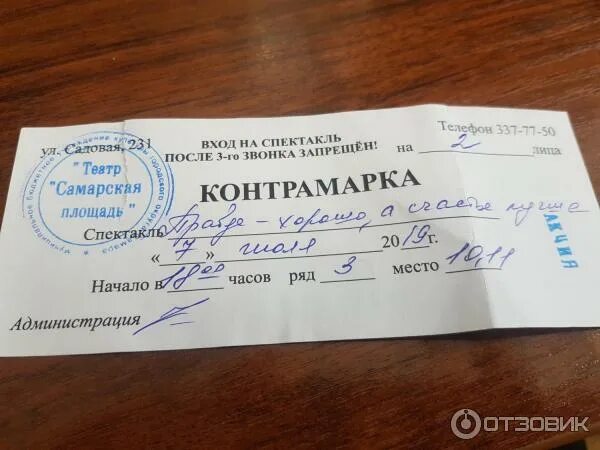 ул. Садовая, 231
ВХОД НА СПЕКТАКЛЬ
ПОСЛЕ 3-го ЗВОНКА ЗАПРЕЩЁН!
Телефон 337-77-50
на 2 лица
"Театр
"Самарская
площадь"
КОНТРАМАРКА
Спектакль Правда - хорошо, а счастье лучше
«7» июля 2019г.
АКЦИЯ
Начало в 18 00 часов ряд 3 место 10,11
Администрация
ОТЗОВИК